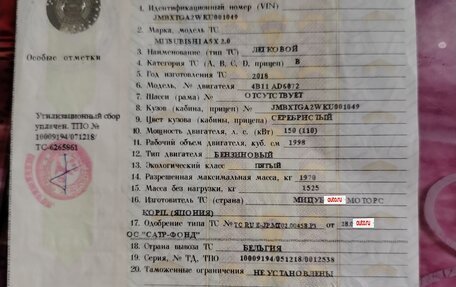 1. Идентификационный номер (VIN)
JMBXTGA2WKU001049
2. Марка, модель ТС
MITSUBISHI ASX 2.0
3. Наименование (тип ТС) ЛЕГКОВОЙ
4. Категория ТС (A, B, C, D, прицеп) B
5. Год изготовления ТС 2018
6. Модель, № двигателя 4B11 AD6072
7. Шасси (рама) № ОТСУТСТВУЕТ
8. Кузов (кабина, прицеп) № JMBXTGA2WKU001049
9. Цвет кузова (кабины, прицепа) СЕРЕБРИСТЫЙ
10. Мощность двигателя, л. с. (кВт) 150 (110)
11. Рабочий объем двигателя, куб. см 1998
12. Тип двигателя БЕНЗИНОВЫЙ
13. Экологический класс ПЯТЫЙ
14. Разрешенная максимальная масса, кг 1970
15. Масса без нагрузки, кг 1525
16. Изготовитель ТС (страна) МИЦУБ auto.ru МОТОРС
КОРП. (ЯПОНИЯ)
17. Одобрение типа ТС № ТС RU E-JP.MT02.00458.Р3 от 18.0 auto.ru
ОС "САТР-ФОНД"
18. Страна вывоза ТС БЕЛЬГИЯ
19. Серия, № ТД, ТПО 10009194/051218/0012538
20. Таможенные ограничения НЕ УСТАНОВЛЕНЫ
Особые отметки
Утилизационный сбор
уплачен. ТПО №
10009194/071218
ТС-6265961